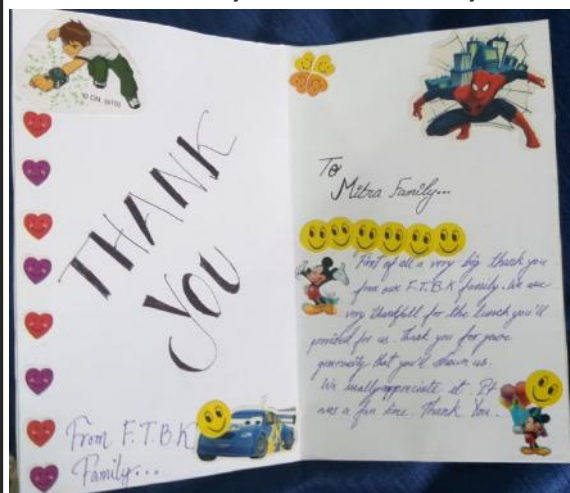 THANK
YOU
From F.T.B.K
Family...
To
Mitra Family...
First of all a very big thank you
from our F.T.B.K family. We are
very thankfull for the lunch you'll
provided for us. Thank you for youre
generosity that you'll shown us.
We really appreciate it. It
was a fun time. Thank You.